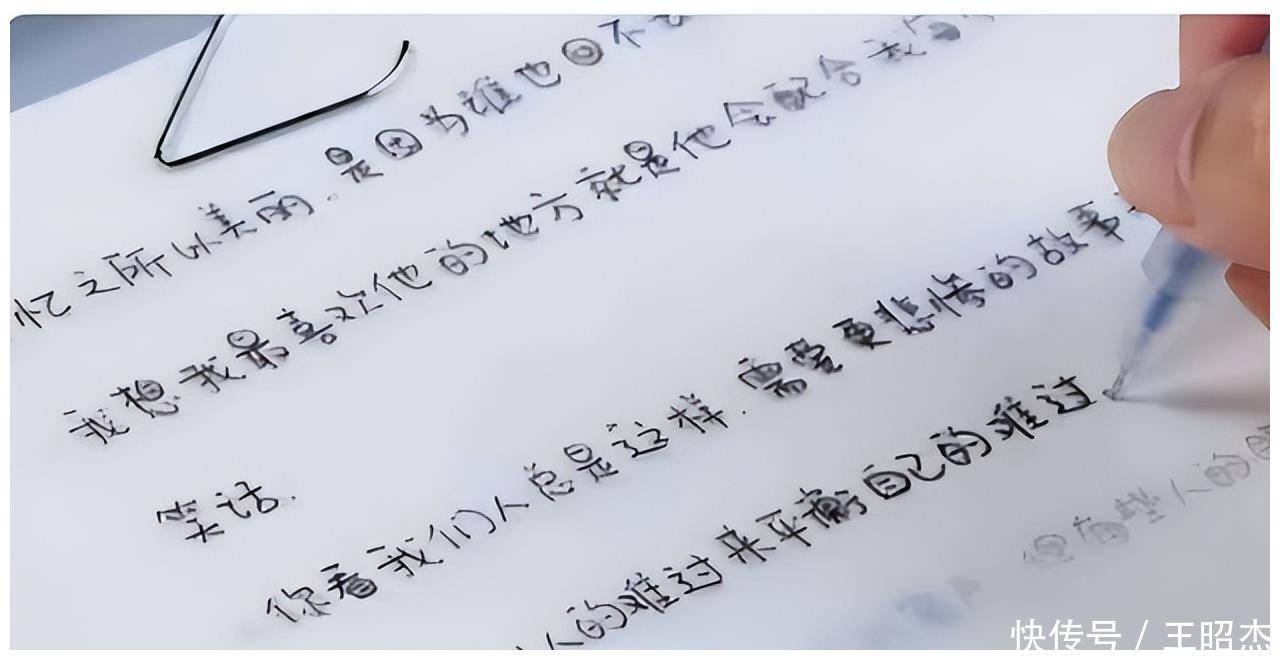 忆之所以美丽.是因为谁也回不
我想我最喜欢他的地方就是他会配合我
笑话.
你看我们人总是这样.需要更悲惨的故事
人的难过来平衡自己的难过.
但有些人的
快传号 / 王昭杰